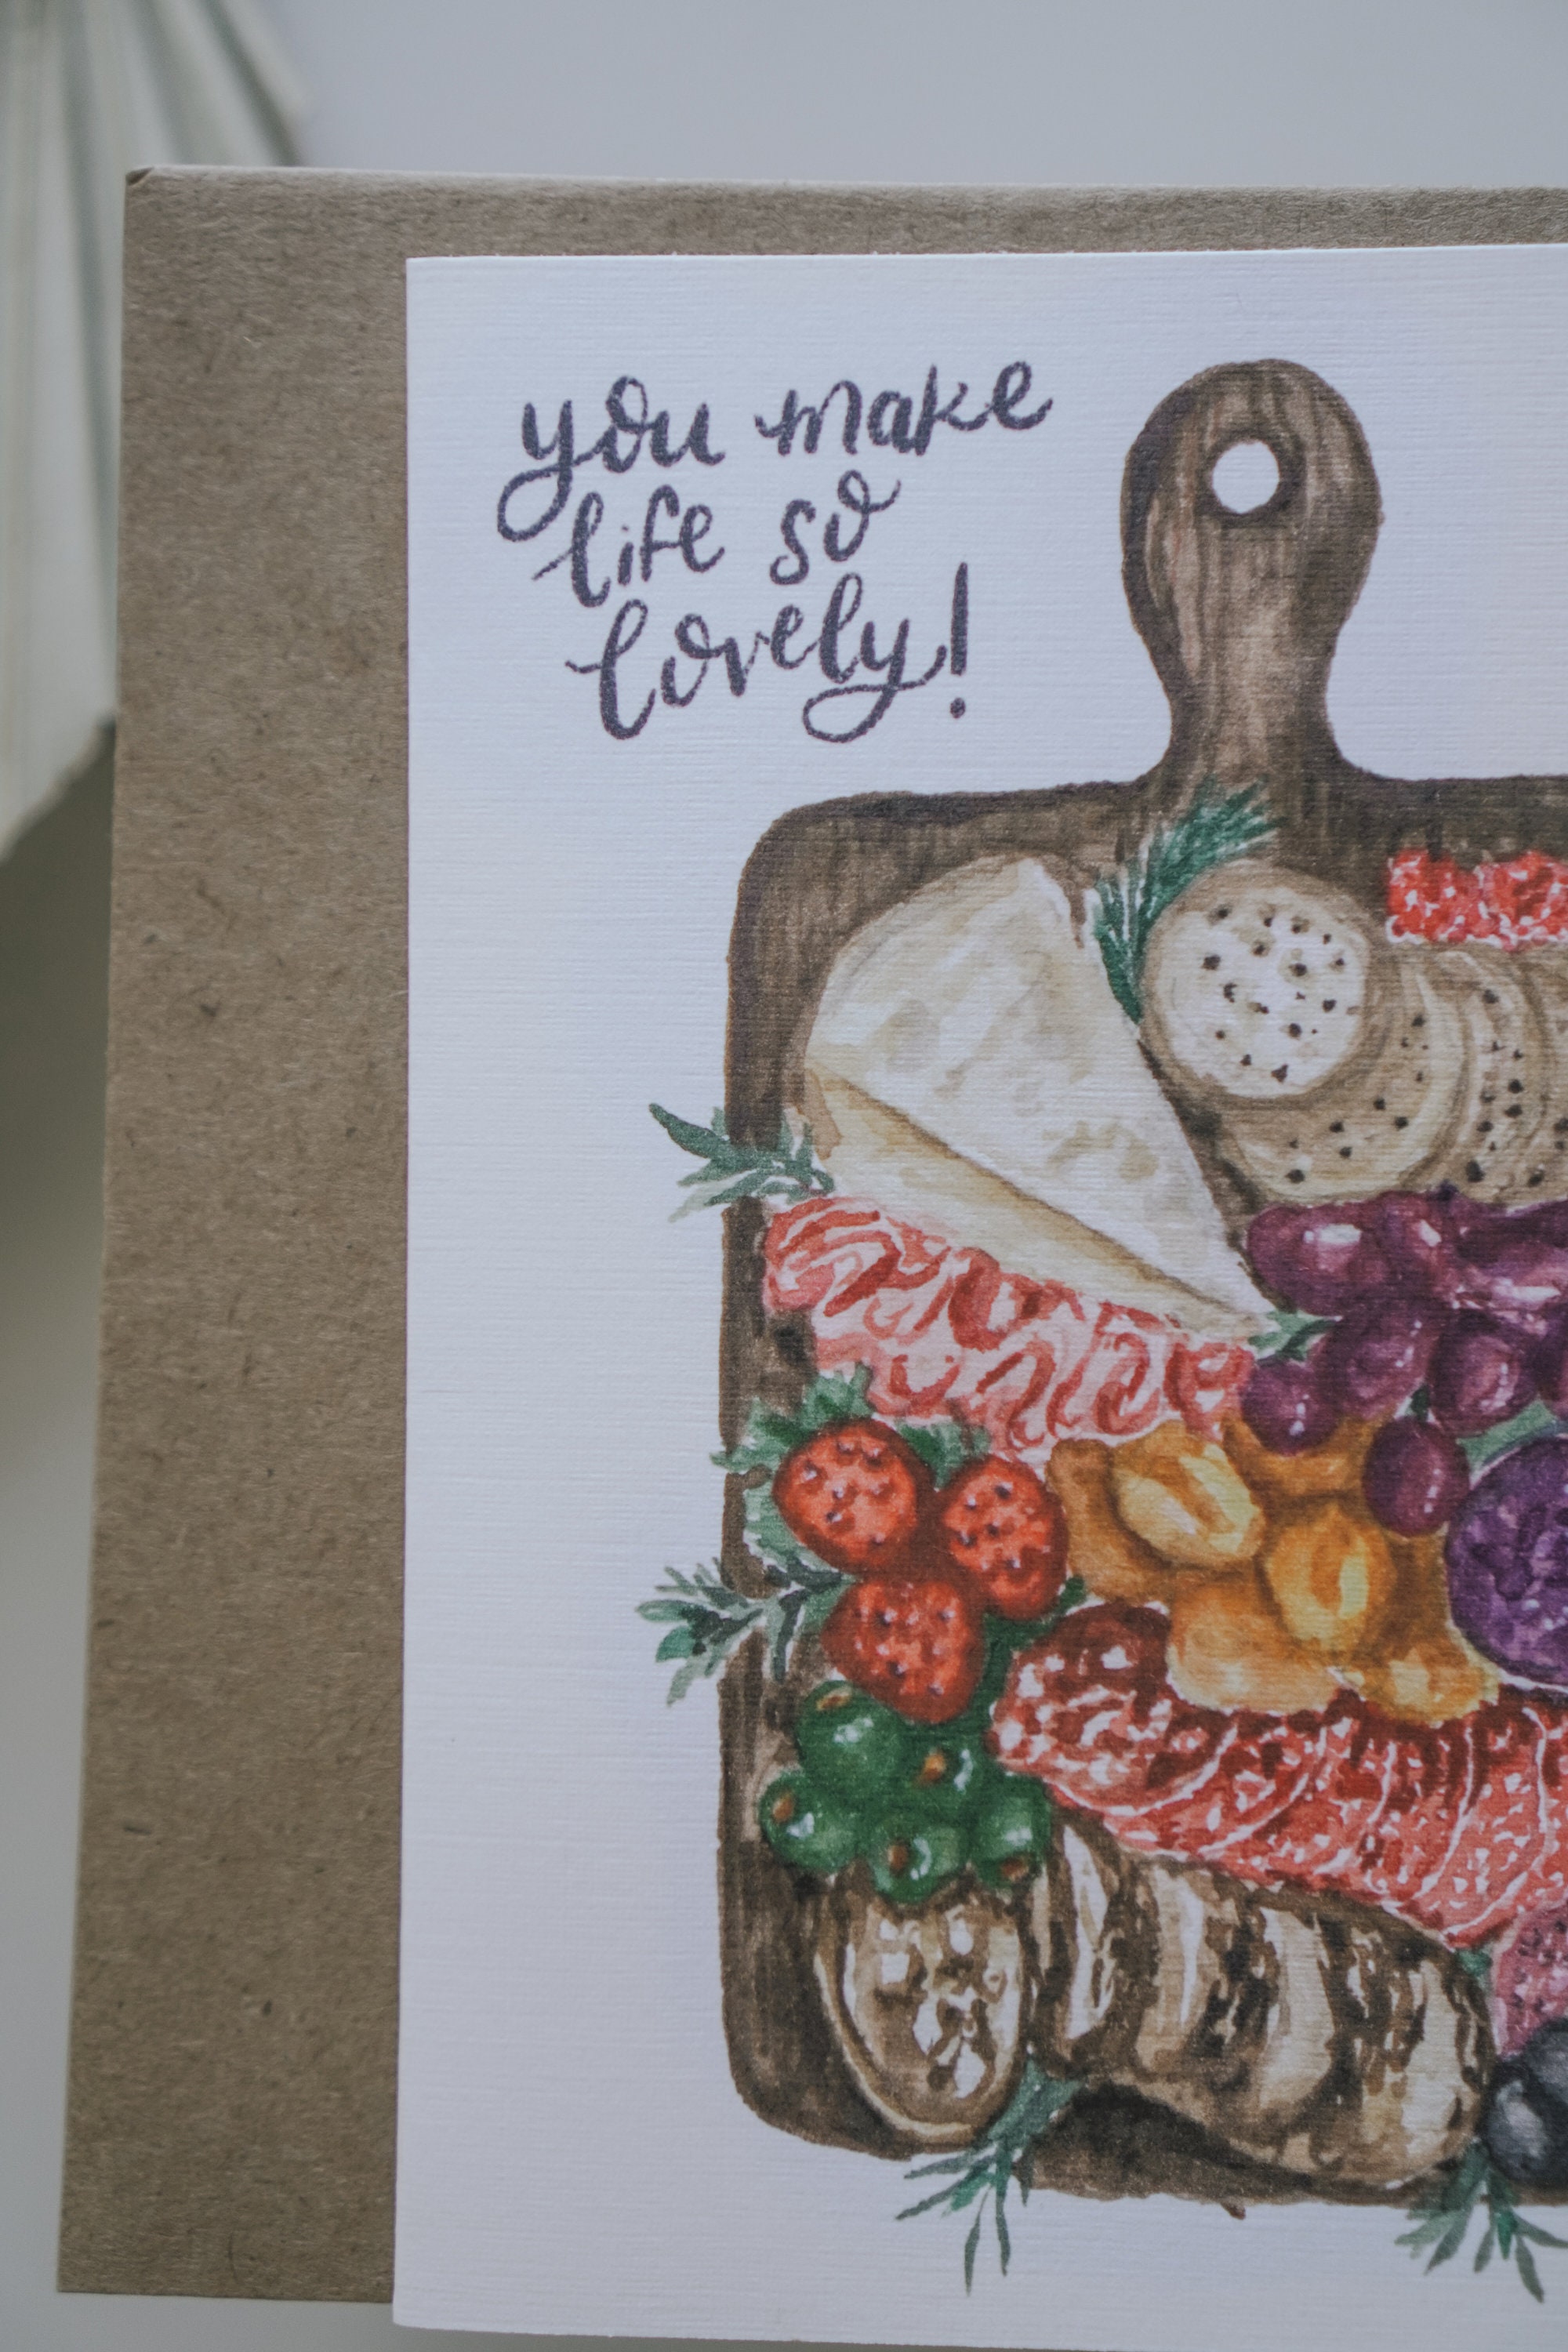 you make
life so
lovely!